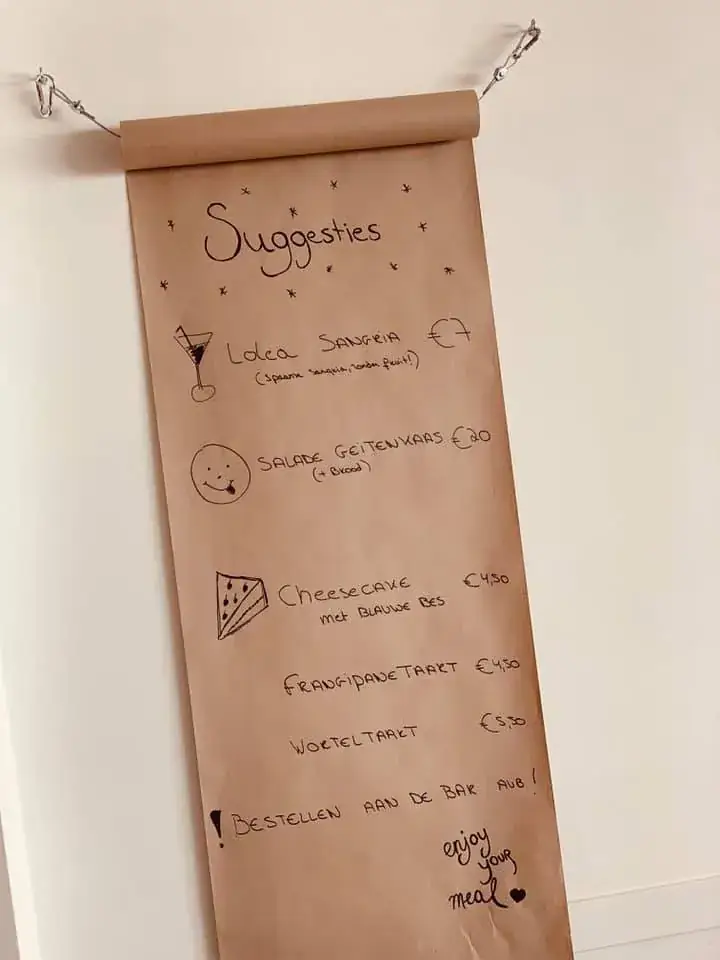 Suggesties
Lolea SANGRIA €7
(Spaanse sangria, zonder fruit!)
SALADE GEITENKAAS €20
(+ Brood)
CHEESECAKE €4,50
met BLAUWE BES
FRANGIPANETAART €4,50
WORTELTAART €5,50
! BESTELLEN AAN DE BAR AUB!
enjoy
your
meal